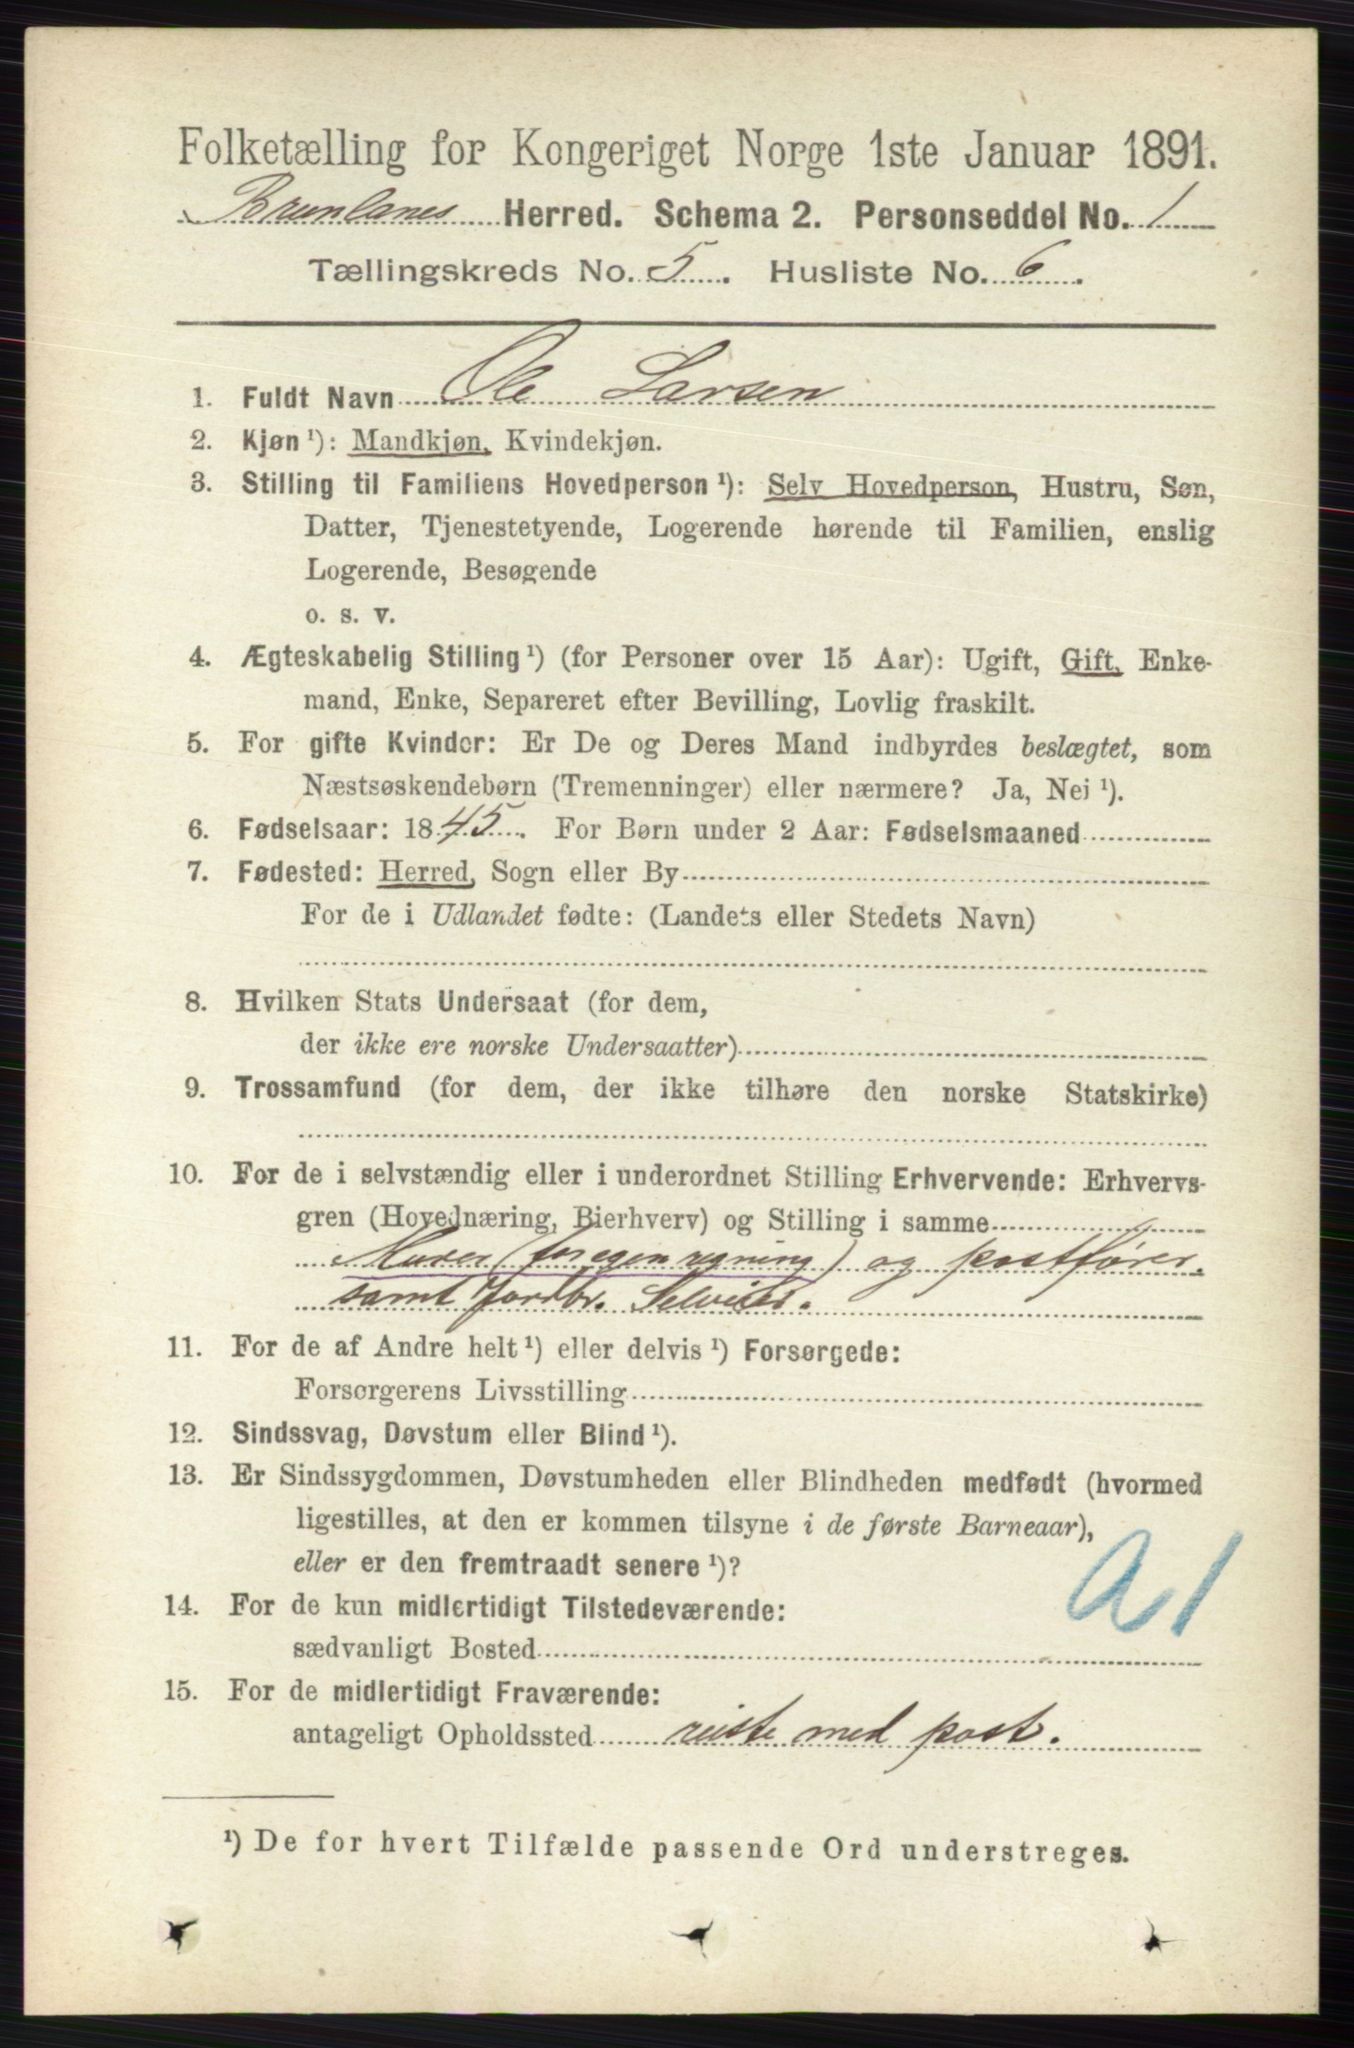 Folketælling for Kongeriget Norge 1ste Januar 1891.
Brunlanes Herred. Schema 2. Personseddel No. 1
Tællingskreds No. 5. Husliste No. 6.
1. Fuldt Navn Ole Larsen
2. Kjøn ¹): Mandkjøn, Kvindekjøn.
3. Stilling til Familiens Hovedperson ¹): Selv Hovedperson, Hustru, Søn,
Datter, Tjenestetyende, Logerende hørende til Familien, enslig
Logerende, Besøgende
o. s. v.
4. Ægteskabelig Stilling ¹) (for Personer over 15 Aar): Ugift, Gift, Enke-
mand, Enke, Separeret efter Bevilling, Lovlig fraskilt.
5. For gifte Kvinder: Er De og Deres Mand indbyrdes beslægtet, som
Næstsøskendebørn (Tremenninger) eller nærmere? Ja, Nei ¹).
6. Fødselsaar: 1845. For Børn under 2 Aar: Fødselsmaaned
7. Fødested: Herred, Sogn eller By
For de i Udlandet fødte: (Landets eller Stedets Navn)
8. Hvilken Stats Undersaat (for dem,
der ikke ere norske Undersaatter)
9. Trossamfund (for dem, der ikke tilhøre den norske Statskirke)
10. For de i selvstændig eller i underordnet Stilling Erhvervende: Erhvervs-
gren (Hovednæring, Bierhverv) og Stilling i samme
Murer (for egen regning) og postfører.
samt Jordbr. Selveier.
11. For de af Andre helt ¹) eller delvis ¹) Forsørgede:
Forsørgerens Livsstilling
12. Sindssvag, Døvstum eller Blind ¹).
13. Er Sindssygdommen, Døvstumheden eller Blindheden medfødt (hvormed
ligestilles, at den er kommen tilsyne i de første Barneaar),
eller er den fremtraadt senere ¹)?
a 1
14. For de kun midlertidigt Tilstedeværende:
sædvanligt Bosted
15. For de midlertidigt Fraværende:
antageligt Opholdssted reiste med post.
¹) De for hvert Tilfælde passende Ord understreges.